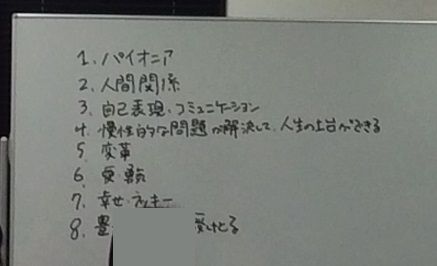 1、パイオニア
2、人間関係
3、自己表現、コミュニケーション
4、慢性的な問題が解決して、人生の土台ができる
5 変革
6、愛、
7、幸せ
8、豊 受けとる